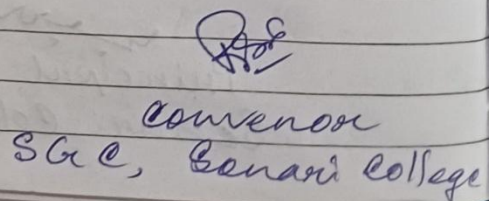 Convenor
SGC, Sonari College